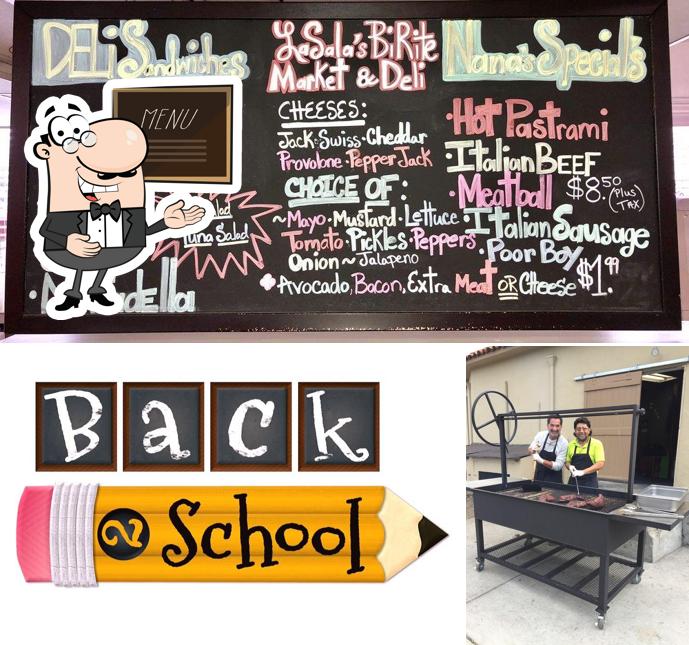 DELi Sandwiches
LaSala's BiRite
Market & Deli
Nana's Special's
MENU
Tuna Salad
CHEESES:
Jack·Swiss·Cheddar
Provolone·Pepper Jack
CHOICE OF:
~Mayo·Mustard·Lettuce
Tomato·Pickles·Peppers
Onion~Jalapeno
Avocado, Bacon, Extra Meat OR Cheese $1.99
·Hot Pastrami
·Italian BEEF
·Meatball $8.50 (Plus TAX)
·Italian Sausage
·Poor Boy
Back
2 School